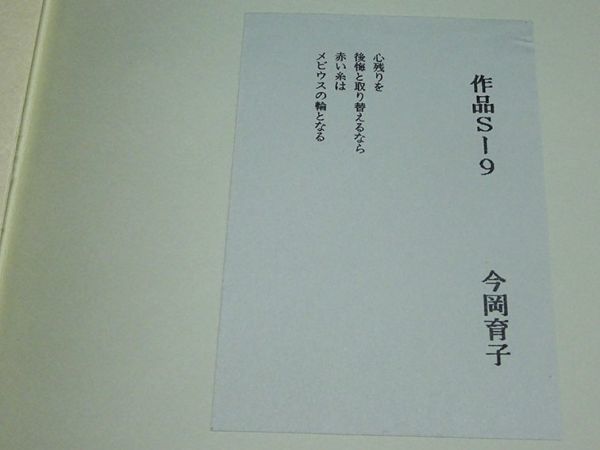 作品S－9
今岡育子
心残りを
後悔と取り替えるなら
赤い糸は
メビウスの輪となる